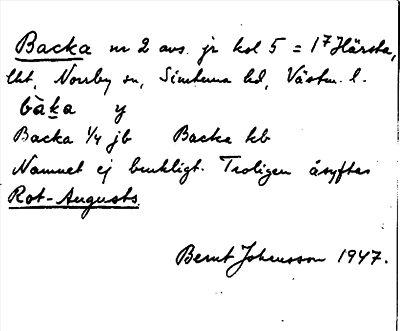 Backa nr 2 avs. jr kol 5 = 1⁷ Härsta,
lht, Norrby sn, Simtuna hd, Västm. l.
bàka y
Backa 1/4 jb Backa kb
Namnet ej brukligt. Troligen åsyftas
Rot-Augusts
Bernt Johansson 1947.